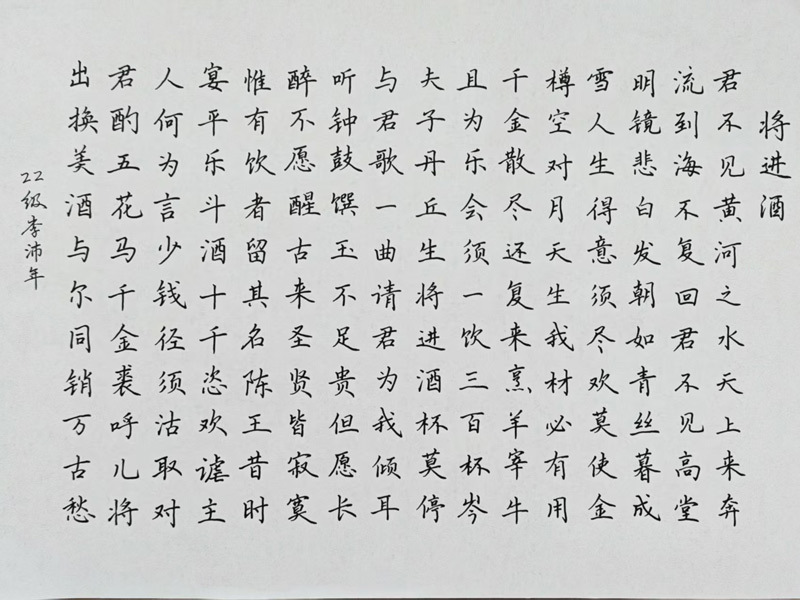 将进酒
君不见黄河之水天上来奔
流到海不复回君不见高堂
明镜悲白发朝如青丝暮成
雪人生得意须尽欢莫使金
樽空对月天生我材必有用
千金散尽还复来烹羊宰牛
且为乐会须一饮三百杯岑
夫子丹丘生将进酒杯莫停
与君歌一曲请君为我倾耳
听钟鼓馔玉不足贵但愿长
醉不愿醒古来圣贤皆寂寞
惟有饮者留其名陈王昔时
宴平乐斗酒十千恣欢谑主
人何为言少钱径须沽取对
君酌五花马千金裘呼儿将
出换美酒与尔同销万古愁
22级李沛年